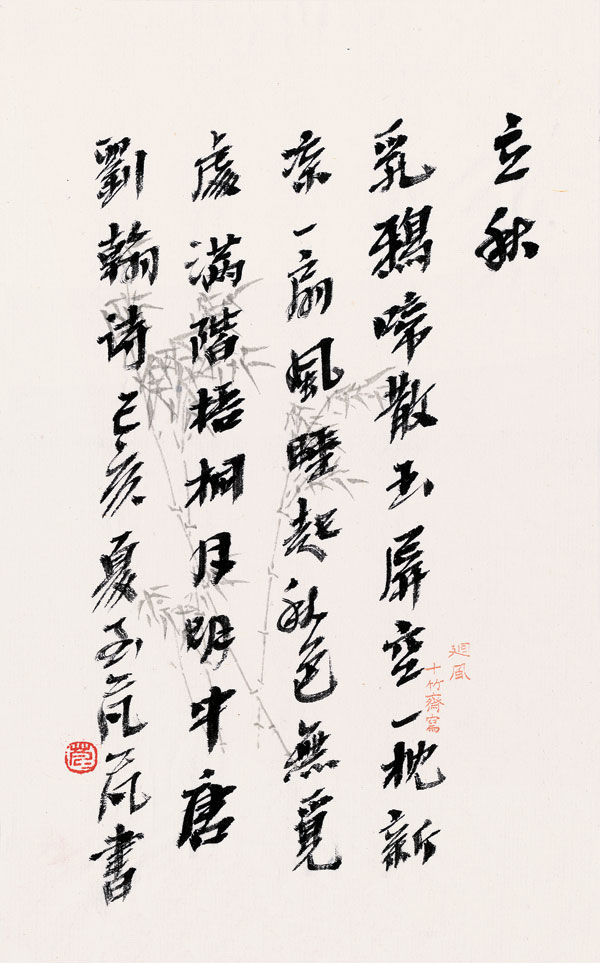 立秋
乳鴉啼散玉屏空一枕新
凉一扇風睡起秋色無覓
處滿階梧桐月明中唐
劉翰诗己亥夏至芃芃書
迴風
十竹齋寫